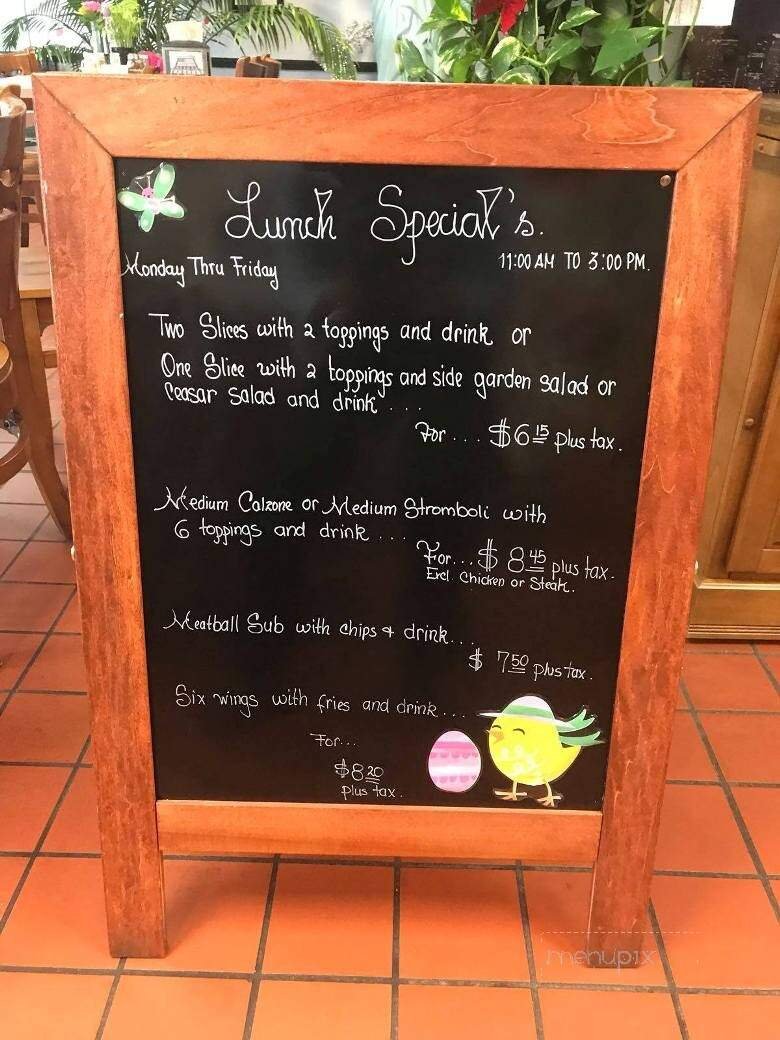 Lunch Special's.
Monday Thru Friday
11:00 AM TO 3:00 PM.
Two Slices with 2 toppings and drink or
One Slice with 2 toppings and side garden salad or
Ceasar salad and drink . . .
For . . . $6 15 plus tax.
Medium Calzone or Medium Stromboli with
6 toppings and drink . . . .
For. . . $ 8 45 plus tax.
Excl. Chicken or Steak.
Meatball Sub with chips & drink. . .
$ 7 50 plus tax.
Six wings with fries and drink. . .
For. . .
$8 20
plus tax.
menupix